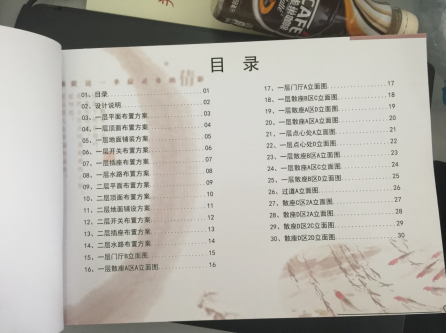 CAFE
目 录
01、目录 01
02、设计说明 02
03、一层平面布置方案 03
04、一层顶面布置方案 04
05、一层地面铺装方案 05
06、一层开关布置方案 06
07、一层插座布置方案 07
08、一层水路布置方案 08
09、二层平面布置方案 09
10、二层顶面布置方案 10
11、二层地面铺设方案 11
12、二层开关布置方案 12
13、二层插座布置方案 13
14、二层水路布置方案 14
15、一层门厅B立面图 15
16、一层散座A区A立面图 16
17、一层门厅A立面图 17
18、一层散座B区C立面图 18
19、一层散座A区D立面图 19
20、一层散座A区A立面图 20
21、一层点心处A立面图 21
22、一层点心处D立面图 22
23、一层散座B区A立面图 23
24、一层散座A区C立面图 24
25、一层散座B区D立面图 25
26、过道A立面图 26
27、散座C区2A立面图 27
28、散座D区2A立面图 28
29、散座D区2C立面图 29
30、散座D区2D立面图 30